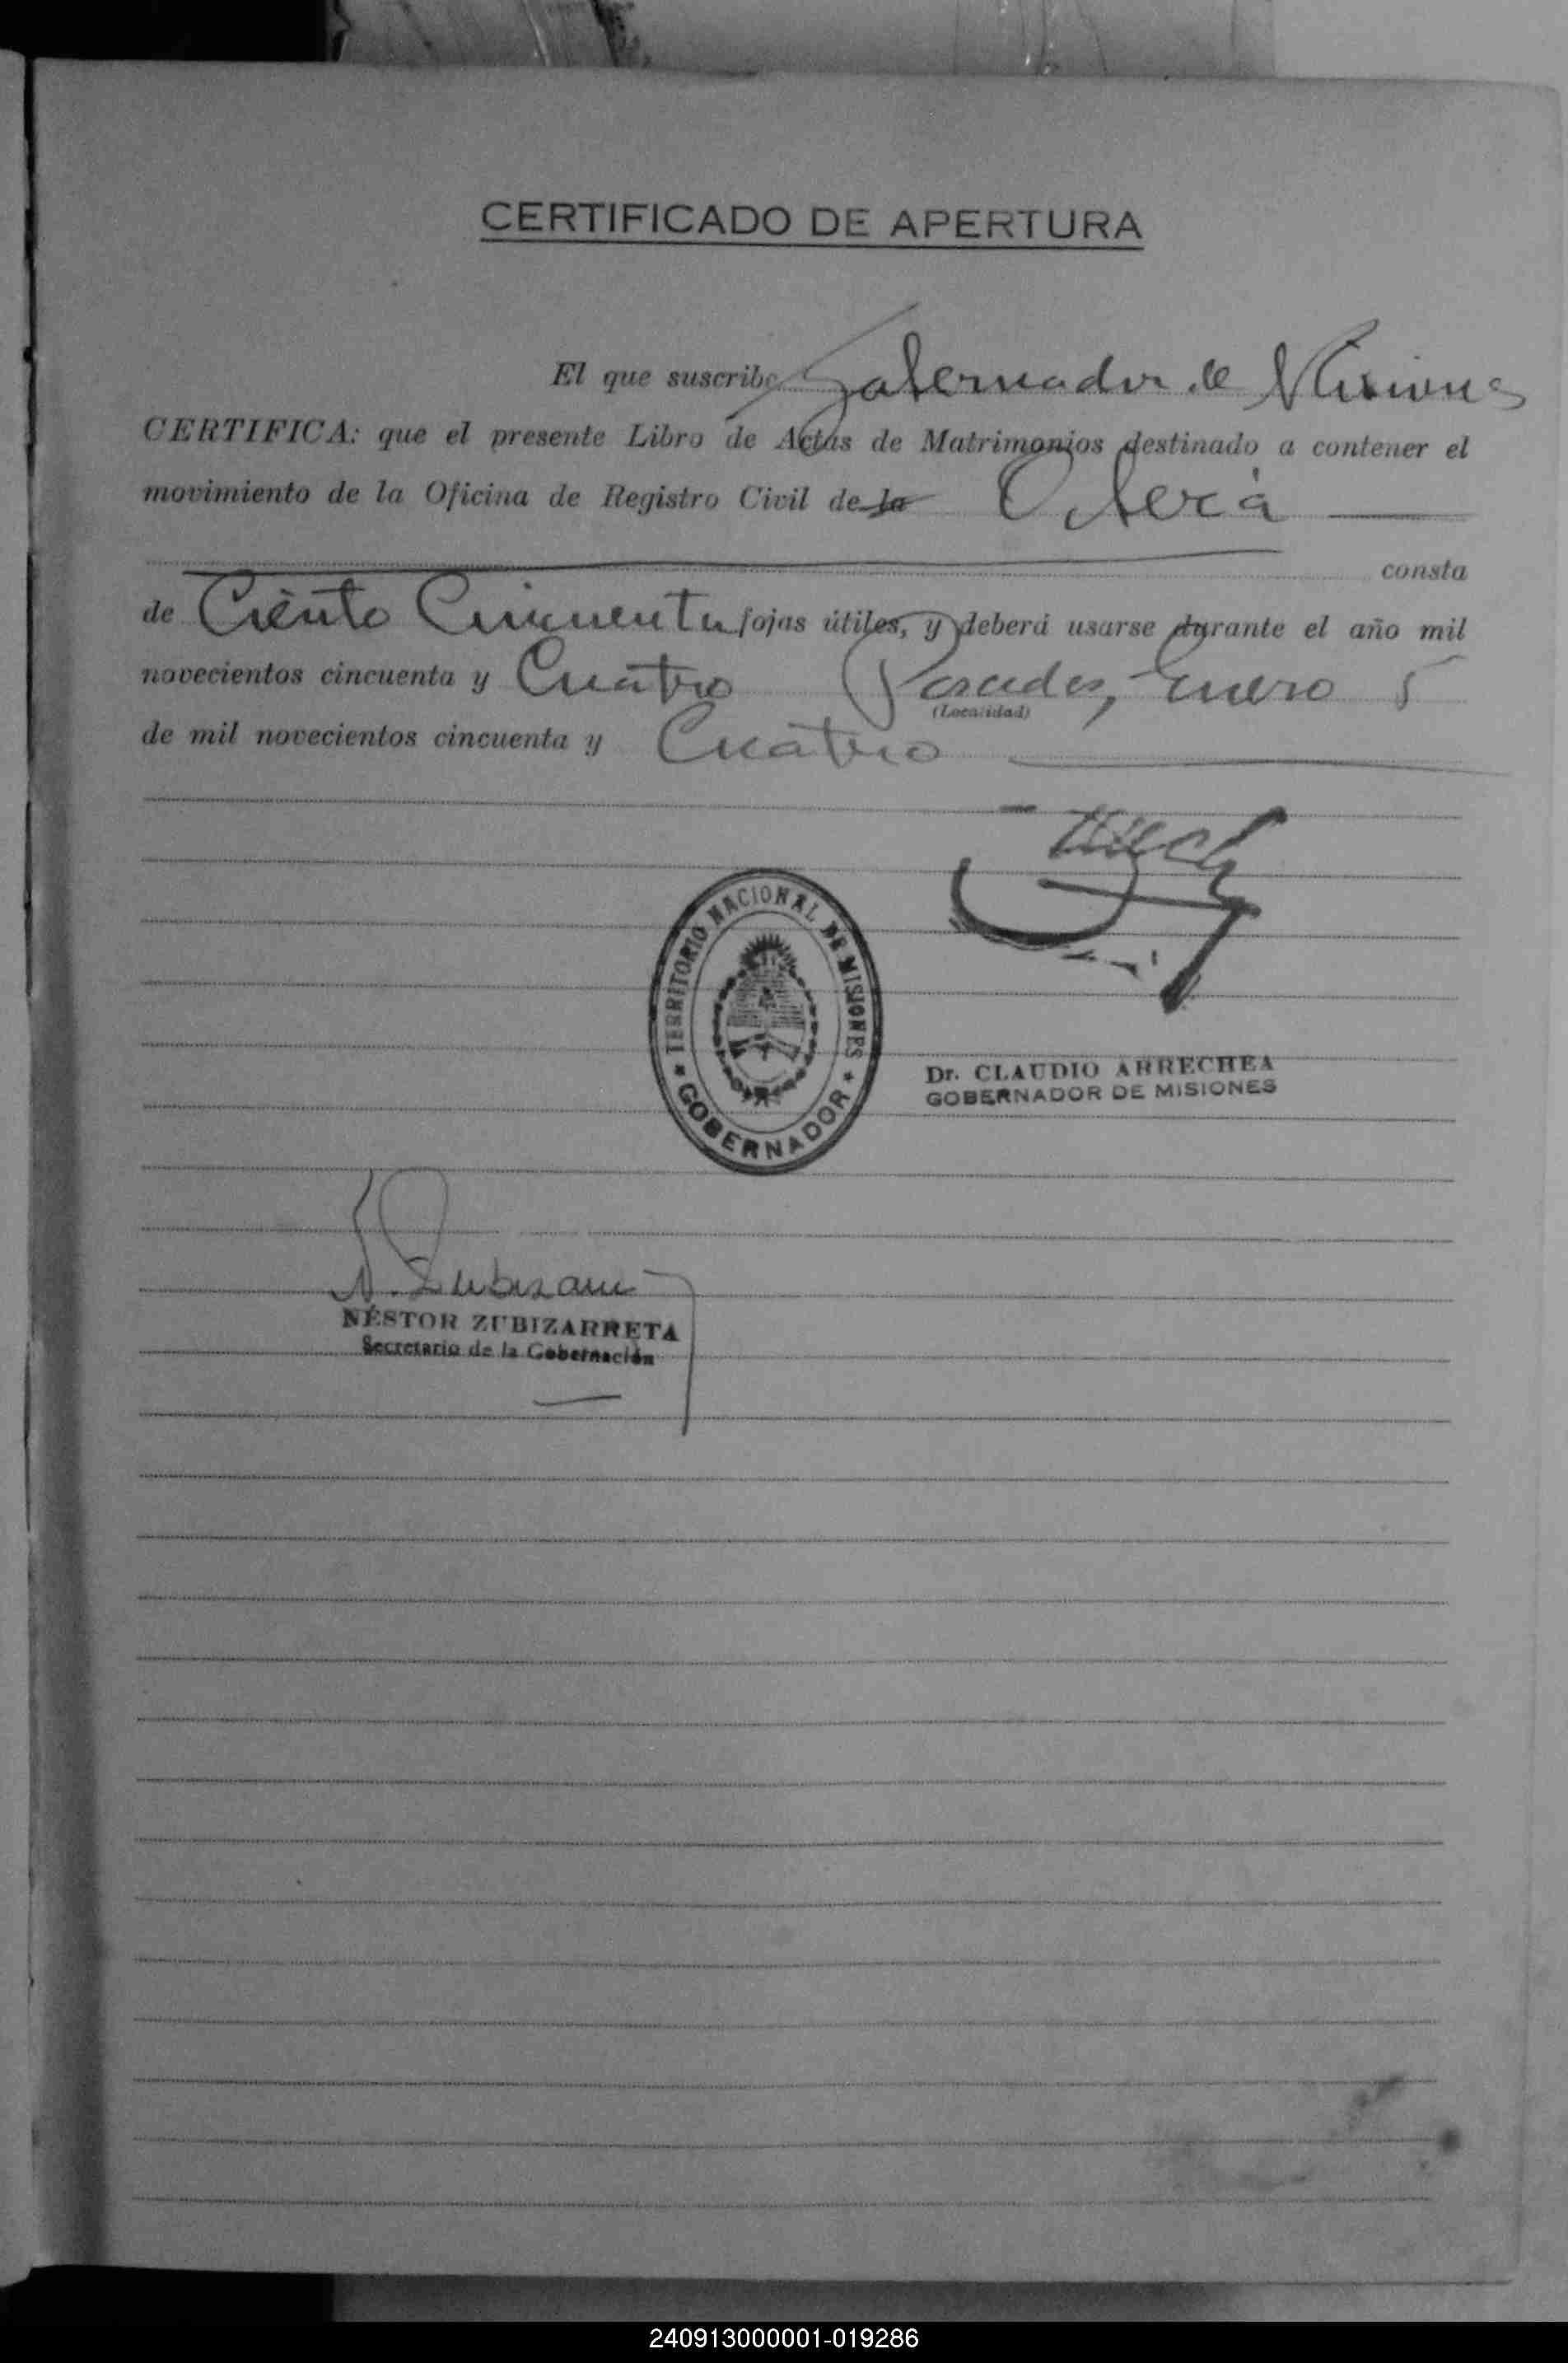 CERTIFICADO DE APERTURA
El que suscribe Gobernador de Misiones
CERTIFICA: que el presente Libro de Actas de Matrimonios destinado a contener el
movimiento de la Oficina de Registro Civil de la Oberá
consta
de Ciento Cincuenta fojas útiles, y deberá usarse durante el año mil
novecientos cincuenta y Cuatro Posadas, Enero 5
(Localidad)
de mil novecientos cincuenta y Cuatro
TERRITORIO NACIONAL DE MISIONES
* GOBERNADOR *
Dr. CLAUDIO ARRECHEA
GOBERNADOR DE MISIONES
N. Zubizarre
NÉSTOR ZUBIZARRETA
Secretario de la Gobernación
240913000001-019286